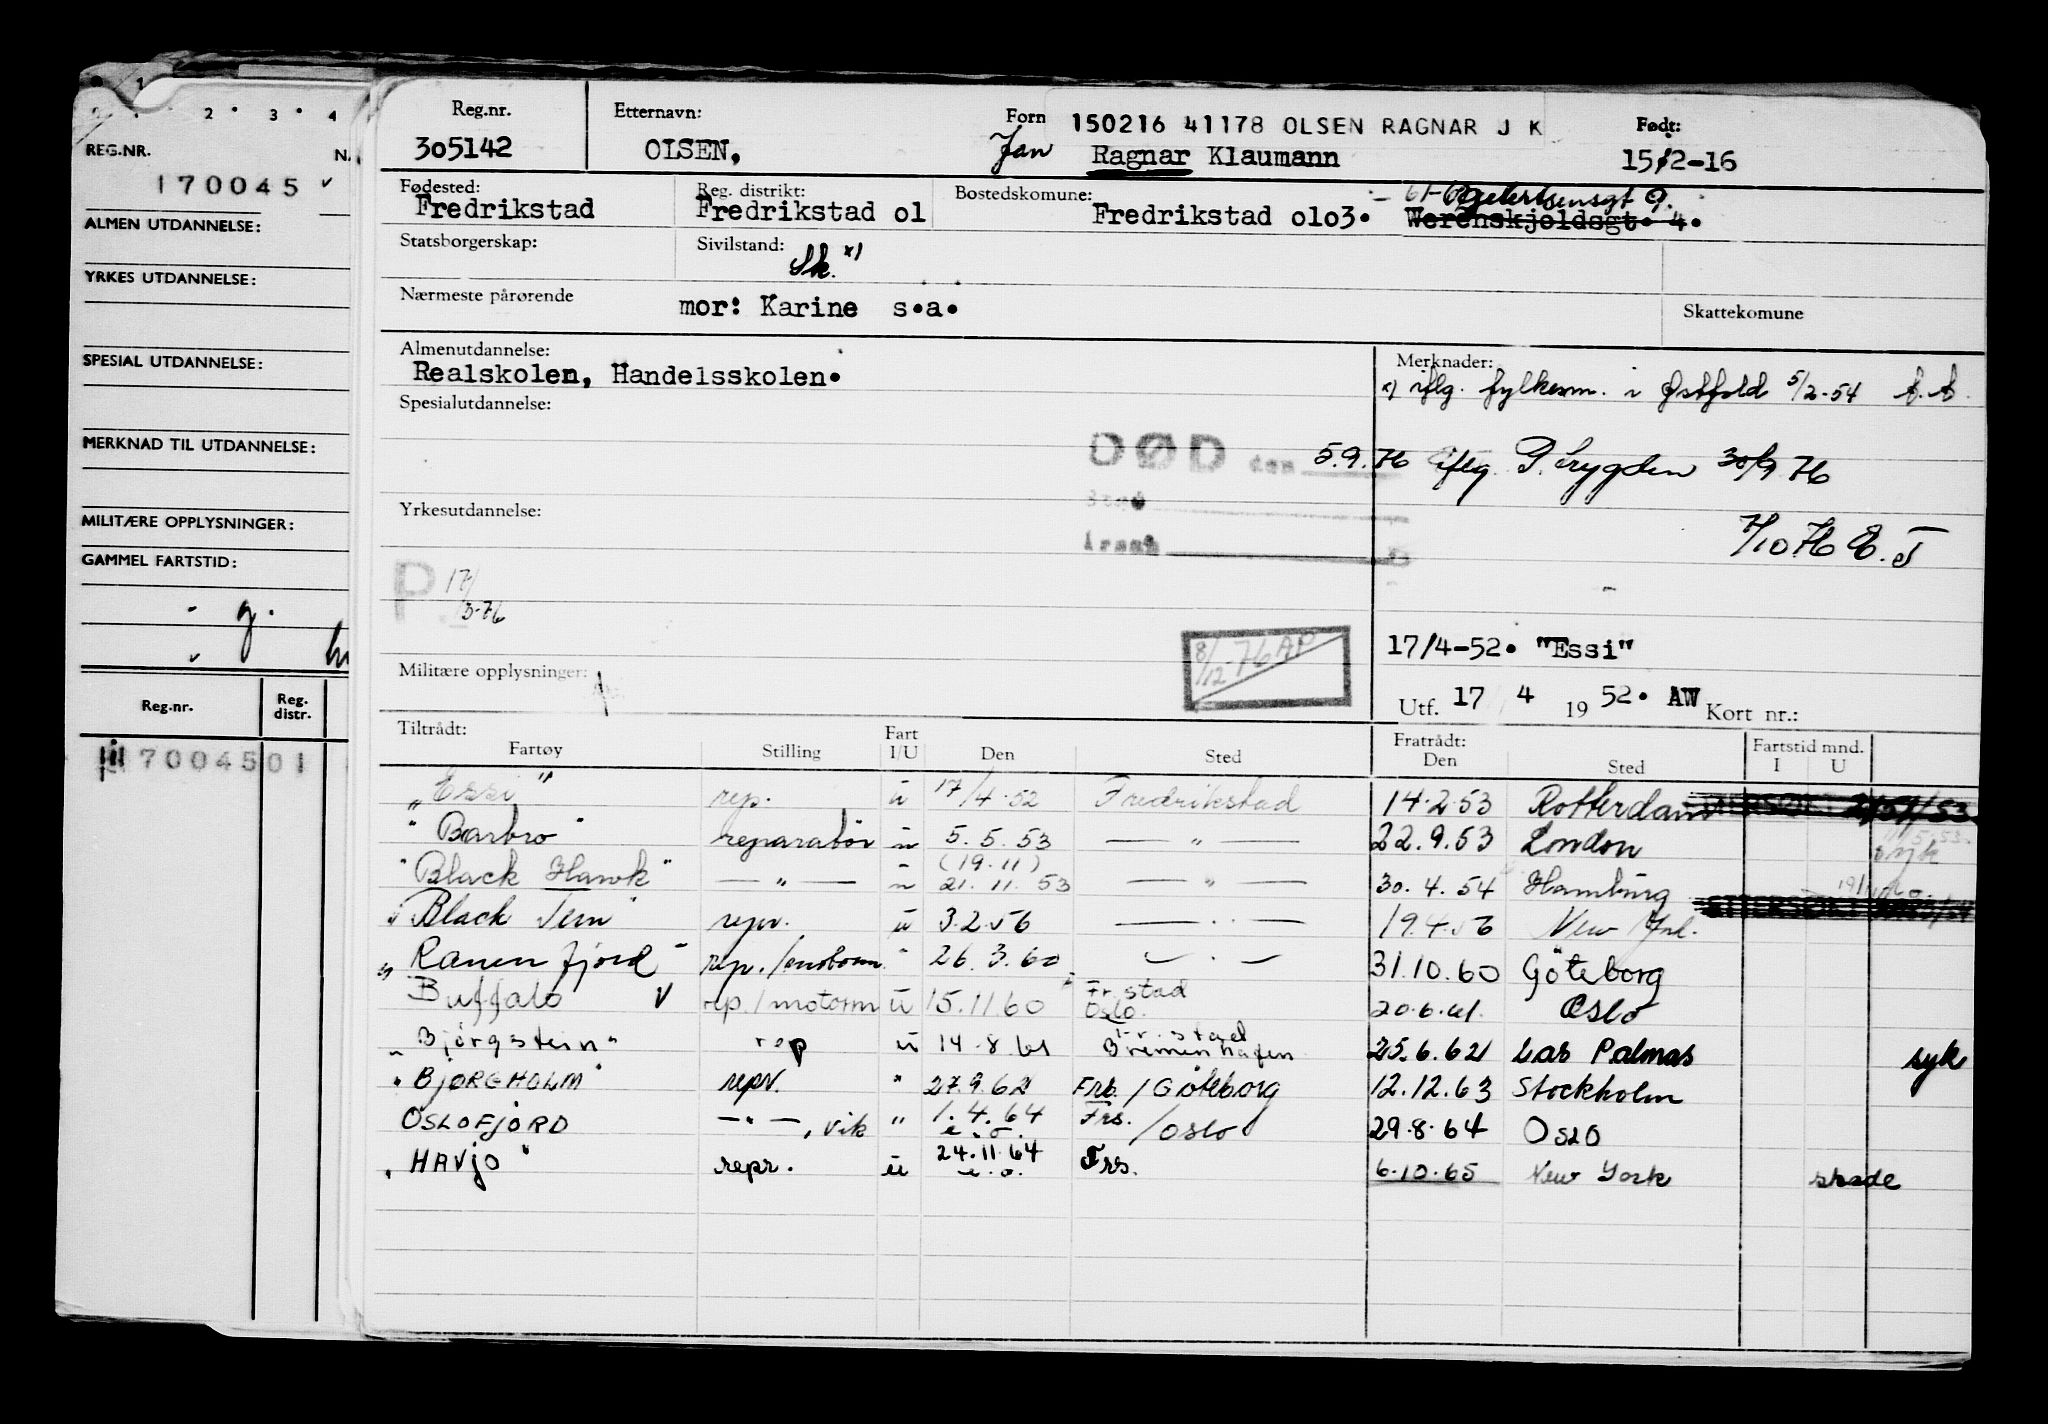 1
2 • 3 • 4
REG.NR.
170045
ALMEN UTDANNELSE:
YRKES UTDANNELSE:
SPESIAL UTDANNELSE:
MERKNAD TIL UTDANNELSE:
MILITÆRE OPPLYSNINGER:
GAMMEL FARTSTID:
Reg.nr. Reg. distr.
7004501
Reg.nr. Etternavn: Forn 150216 41178 OLSEN RAGNAR J K Født:
305142 OLSEN, Jan Ragnar Klaumann 15/2-16
Fødested: Reg. distrikt: Bostedskomune:
Fredrikstad Fredrikstad 01 Fredrikstad 0103. Werenskjoldsgt. 4.
Statsborgerskap: Sivilstand: Sk. x)
Nærmeste pårørende mor: Karine s.a. Skattekomune
Almenutdannelse: Merknader:
Realskolen, Handelsskolen. x) iflg. fylkesm. i Østfold 5/2-54
Spesialutdannelse:
DØD den 5.9.76 iflg. 30/9 76
Sted
Årsak
Yrkesutdannelse: 7/10 76 E.T
P 17/3-76
8/12-76 AP
17/4-52. "Essi"
Militære opplysninger:
Utf. 17 4 1952. AW Kort nr.:
Tiltrådt: Fratrådt: Fartstid mnd.
Fartøy Stilling Fart I/U Den Sted Den Sted I U
"Essi" rep. u 17/4.52 Fredrikstad 14.2.53 Rotterdam
"Barbro" reparatør u 5.5.53 — " — 22.9.53 London syk
"Black Hawk" — " — u (19.11) 21.11.53 — " — 30.4.54 Hamburg
"Black Tern" repr. u 3.2.56 — " — 19.4.56 New
"Ranenfjord" rep./motorm. " 26.3.60 — " — 31.10.60 Göteborg
Buffalo rep/motorm u 15.11.60 Fr.stad Oslo. 20.6.61. Oslo
"Bjørgstein" rep u 14.8.61 Fr.stad Bremenhafen 25.6.62 Las Palmas syk
"BJØRGHOLM" repr. " 27.9.62 Frb./Göteborg 12.12.63 Stockholm
OSLOFJORD — " —, vik " 1.4.64 e.o. Frs./Oslo 29.8.64 Oslo
"HAVJO" repr. u 24.11.64 e.o. Frs. 6.10.65 New York skade